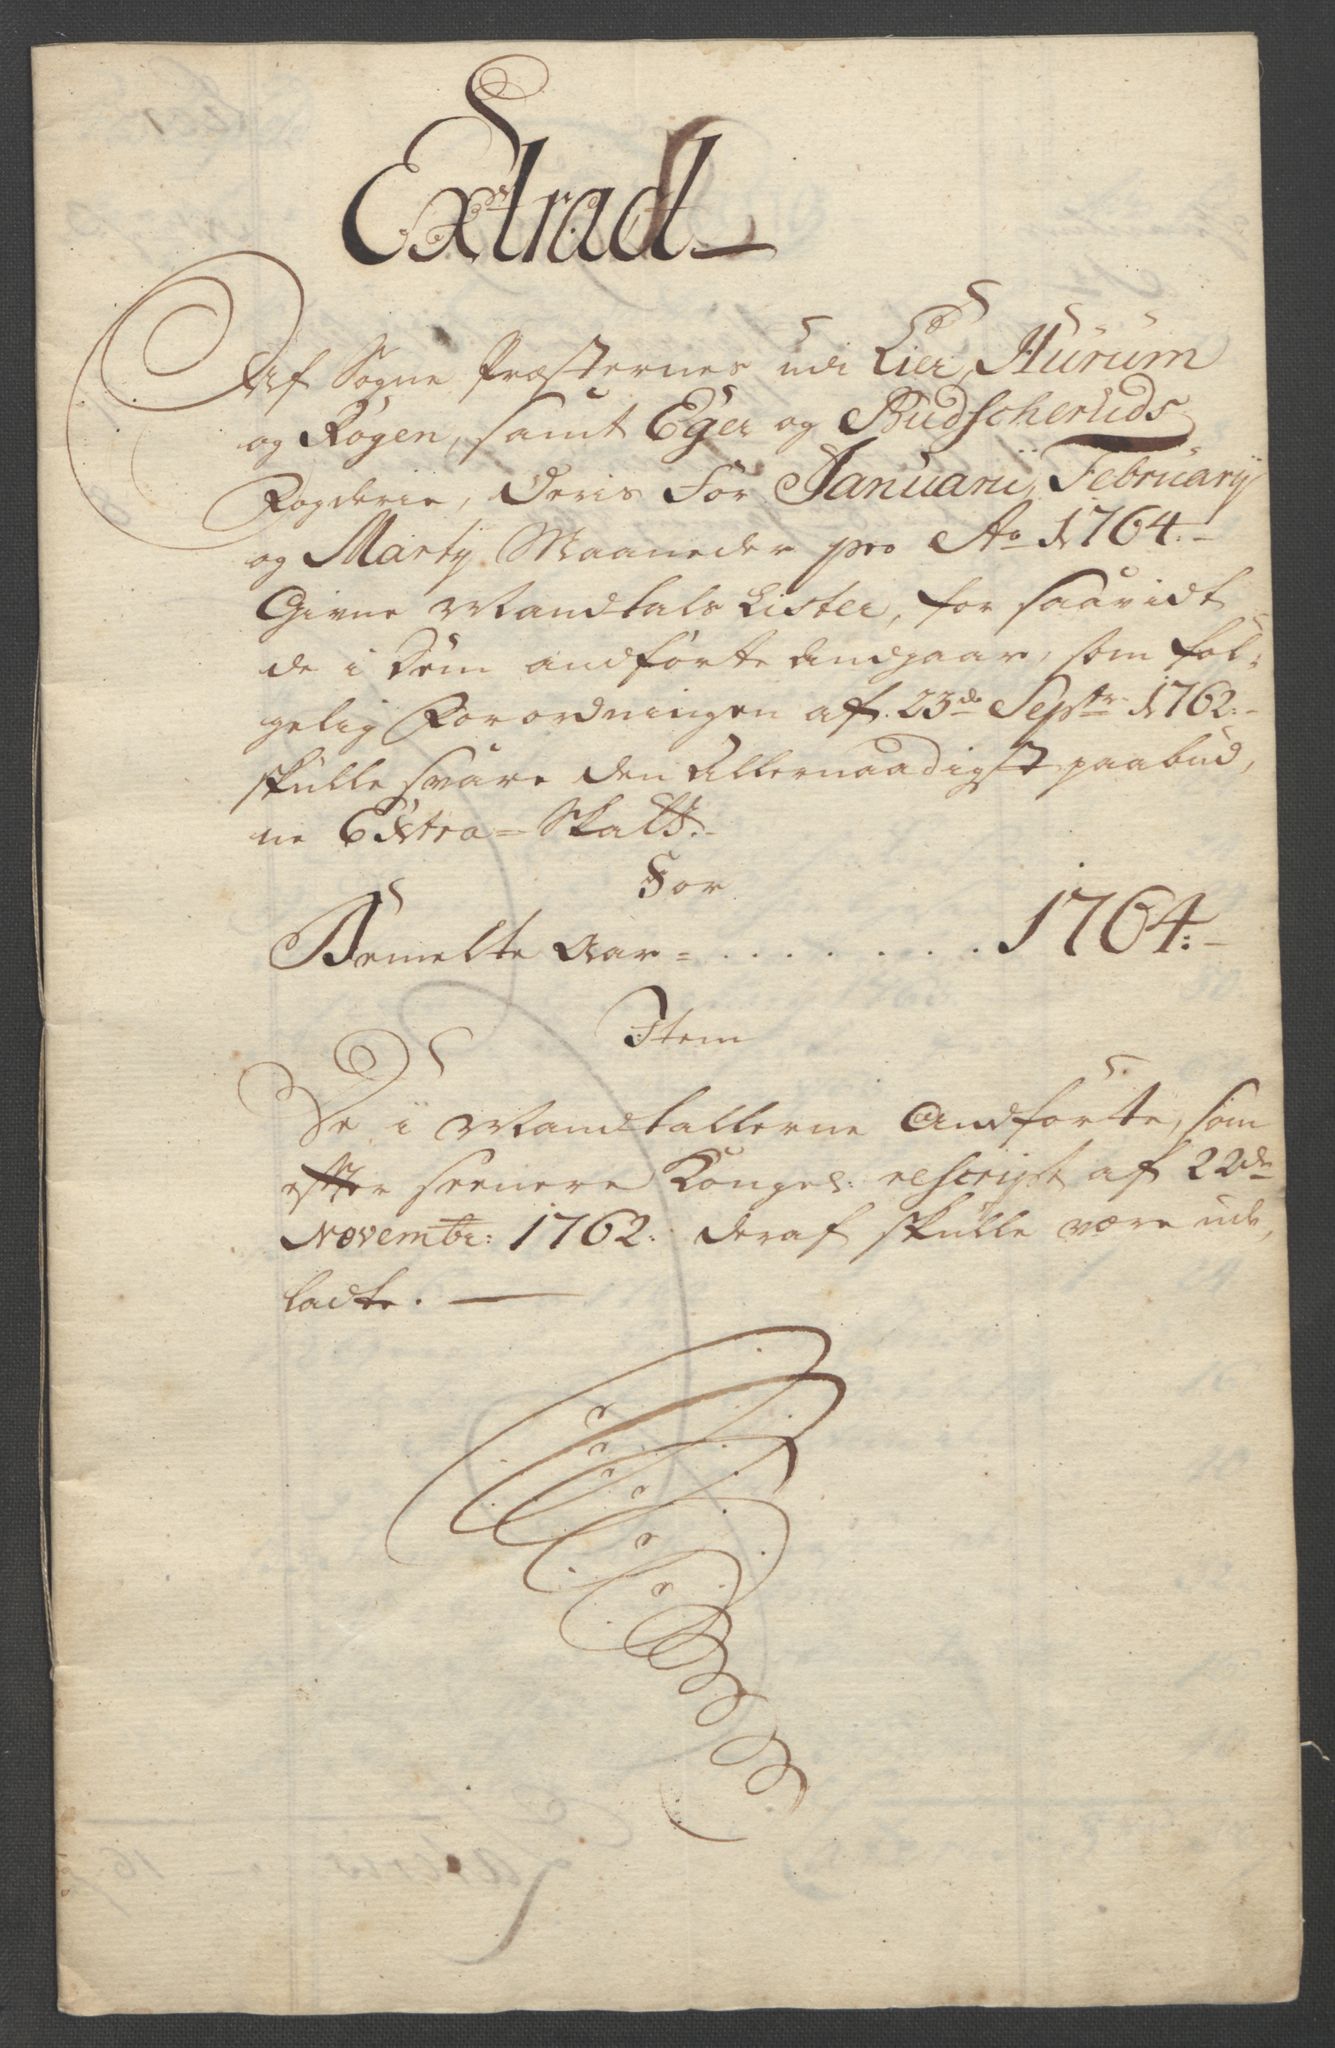 Extract
Af Sogne Præsternes udi Lier, Hurum
og Rögen, samt Eger og Budscheruds
Fogderie, Deris For Januarii, Februarij
og Martij Maaneder pro Ao 1764.
Givne Mandtals Lister, for saavidt
de i Dem andförte Andgaar, som föl-
gelig Forordningen af 23de Septr 1762.
skulle svare den Allernaadigst paabud,
ne Extra-Skatt.
For
Bemelte Aar = . . . . . . . . 1764.
Item
De i Mandtallerne Andförte, som
efter seenere Kongel: rescript af 22de
Novembr: 1762. deraf skulle være ude,
ladte.